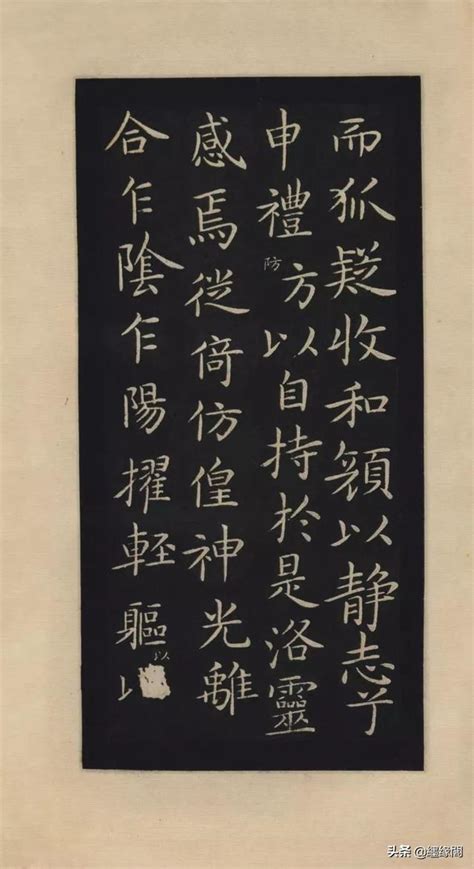 而狐疑收和顏以静志兮
申禮方以自持於是洛靈
防
感焉徙倚仿偟神光離
合乍陰乍陽擢輕軀
以
头条 @纏缘閣